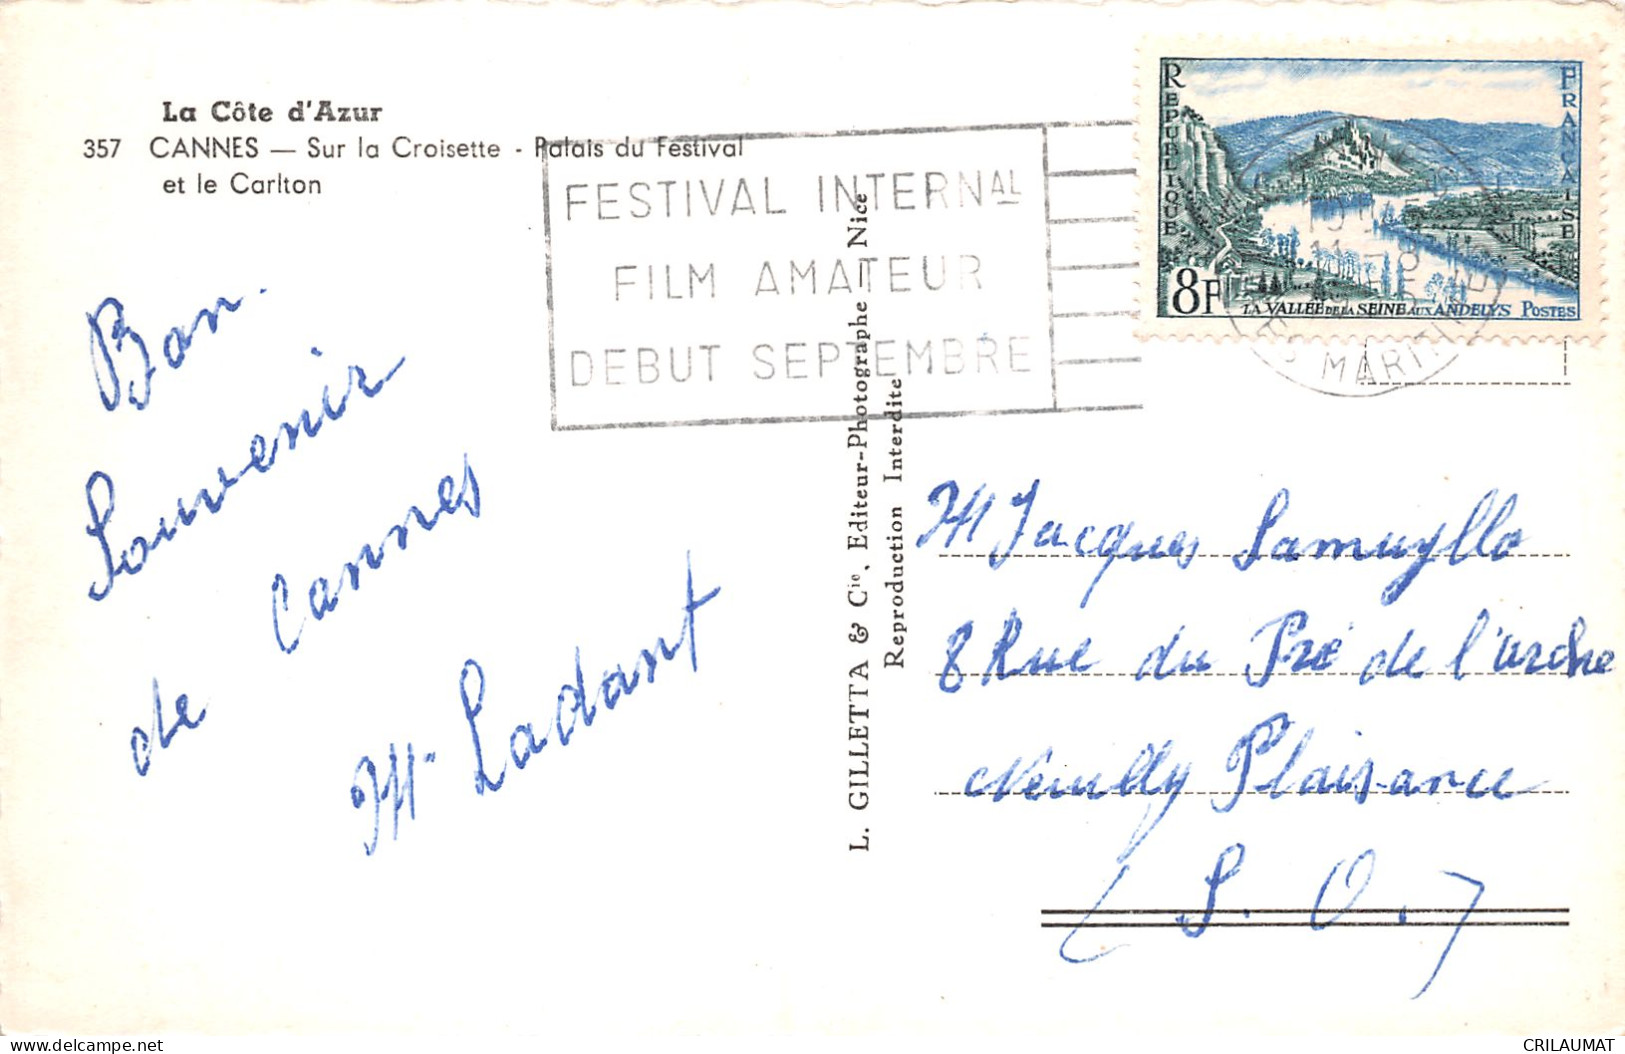 La Côte d'Azur
357 CANNES — Sur la Croisette - Palais du Festival
et le Carlton
FESTIVAL INTERNAL
FILM AMATEUR
DEBUT SEPTEMBRE
REPUBLIQUE FRANÇAISE
8F
LA VALLÉE DE LA SEINE AUX ANDELYS POSTES
MARITIMES
Bon
Souvenir
de Cannes
M. Ladant
L. GILLETTA & Cie, Editeur-Photographe — Nice
Reproduction Interdite
M Jacques Samuyllo
8 Rue du Pré de l'arche
Neuilly Plaisance
(S. O.)
delcampe.net
CRILAUMAT